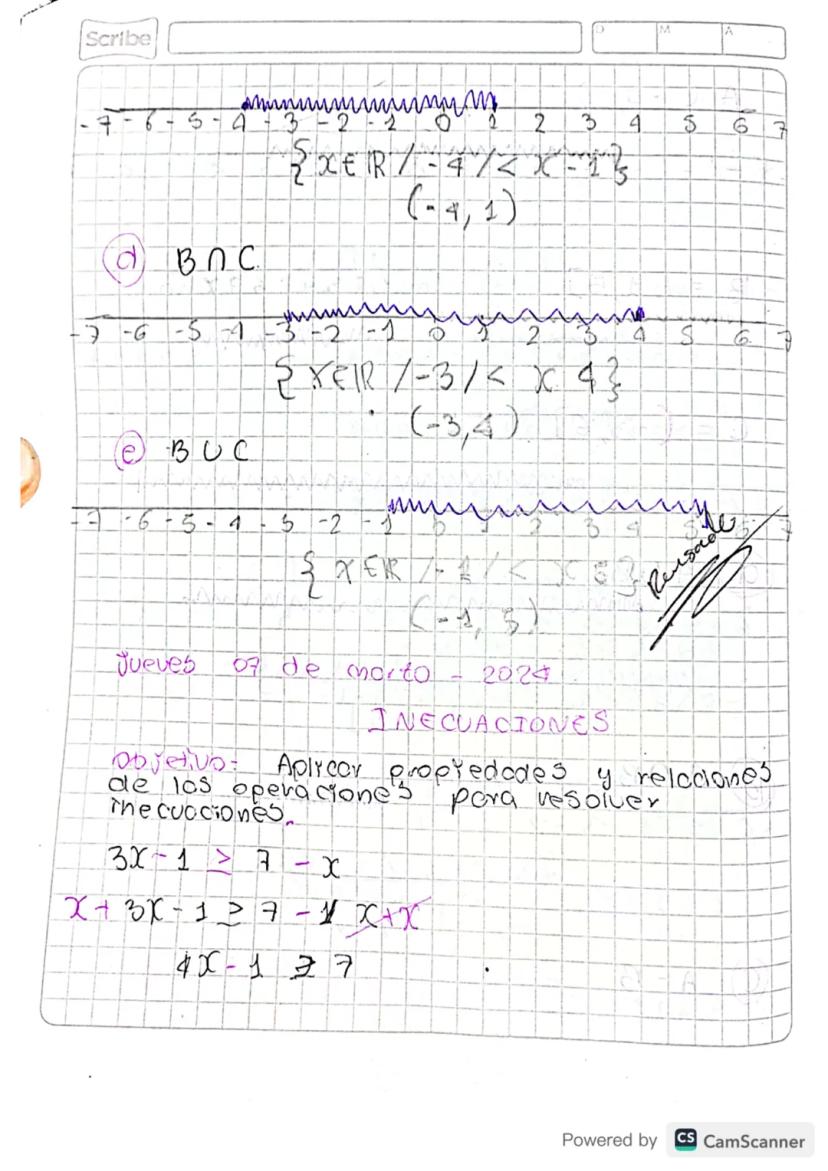 Scribe
D M A
-7 -6 -5 -4 -3 -2 -1 0 1 2 3 4 5 6 7
{x∈ℝ / -4 /< x -1}
(-4, 1)
d B ∩ C
-7 -6 -5 -4 -3 -2 -1 0 1 2 3 4 5 6 7
{x∈ℝ / -3 /< x 4}
(-3, 4)
e B ∪ C
-7 -6 -5 -4 -3 -2 -1 0 1 2 3 4 5 6 7
{x∈ℝ / -1 /< x 5}
(-1, 5)
Jueves 07 de marzo - 2024
INECUACIONES
Objetivo: Aplicar propiedades y relaciones
de las operaciones para resolver
inecuaciones.
3x - 1 ≥ 7 - x
x + 3x - 1 ≥ 7 - x + x
4x - 1 ≥ 7
Powered by CS CamScanner